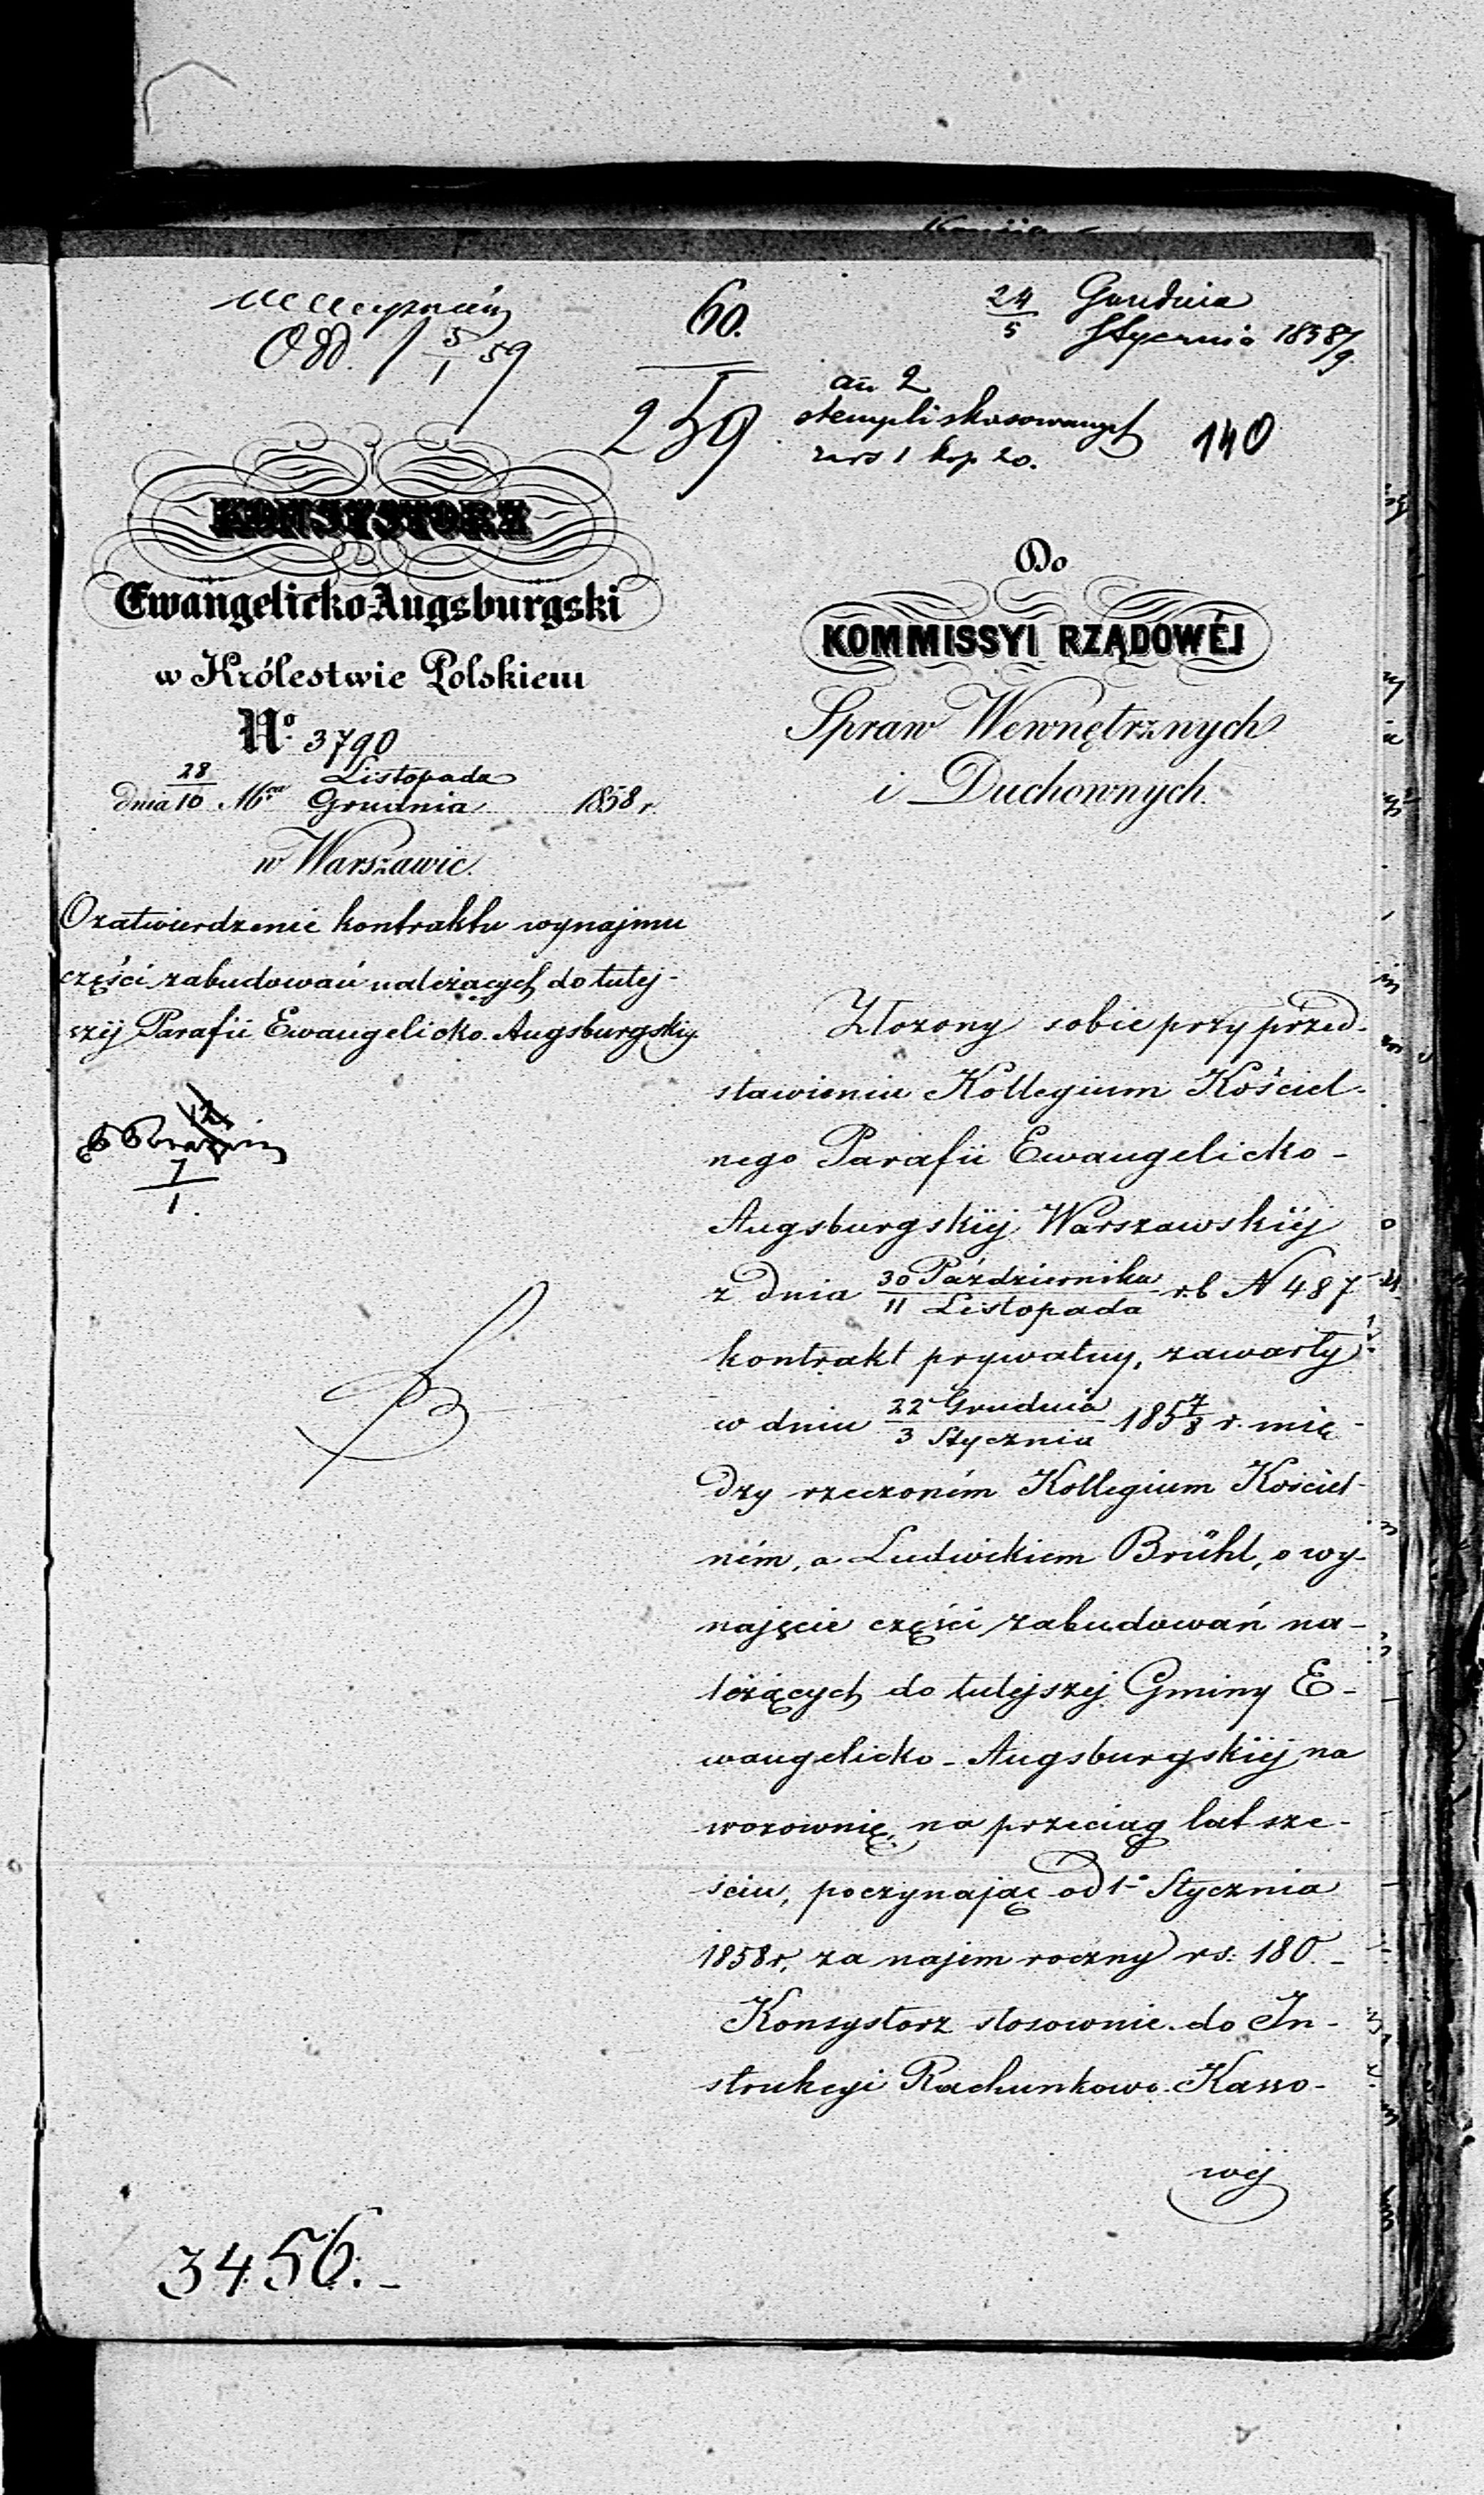 Odd. 5/1 59
60.
259
24/5 Grudnia Stycznia 1858/9.
an 2
stempli skasowanych
na rs 1 kop 20.
140
KONSYSTORZ
Ewangelicko-Augsburgski
w Królestwie Polskiem
No. 3790
dnia 28/10 Mca Listopada/Grudnia 1858 r.
w Warszawie.
O zatwierdzenie kontraktu wynajmu
części zabudowań należących do tutej-
széj Parafii Ewangelicko-Augsburgskiéj.
7/1.
Do
KOMMISSYI RZĄDOWÉJ
Spraw Wewnętrznych
i Duchownych.
Złożony sobie przy przed-
stawieniu Kollegium Kościel-
nego Parafii Ewangelicko-
Augsburgskiéj Warszawskiéj
z dnia 30 Października/11 Listopada r.b. N 487
kontrakt prywatny, zawarty
w dniu 22 Grudnia/3 Stycznia 1857/8 r. mię-
dzy rzeczoném Kollegium Kościel-
ném, a Ludwikiem Brühl, o wy-
najęcie części zabudowań na-
leżących do tutejszej Gminy E-
wangelicko-Augsburgskiéj na
wozownię, na przeciąg lat sze-
ściu, poczynając od 1o Stycznia
1858 r, za najem roczny rs: 180.-
Konsystorz stosownie do In-
strukcyi Rachunkowo-Kasso-
wéj
3456.-